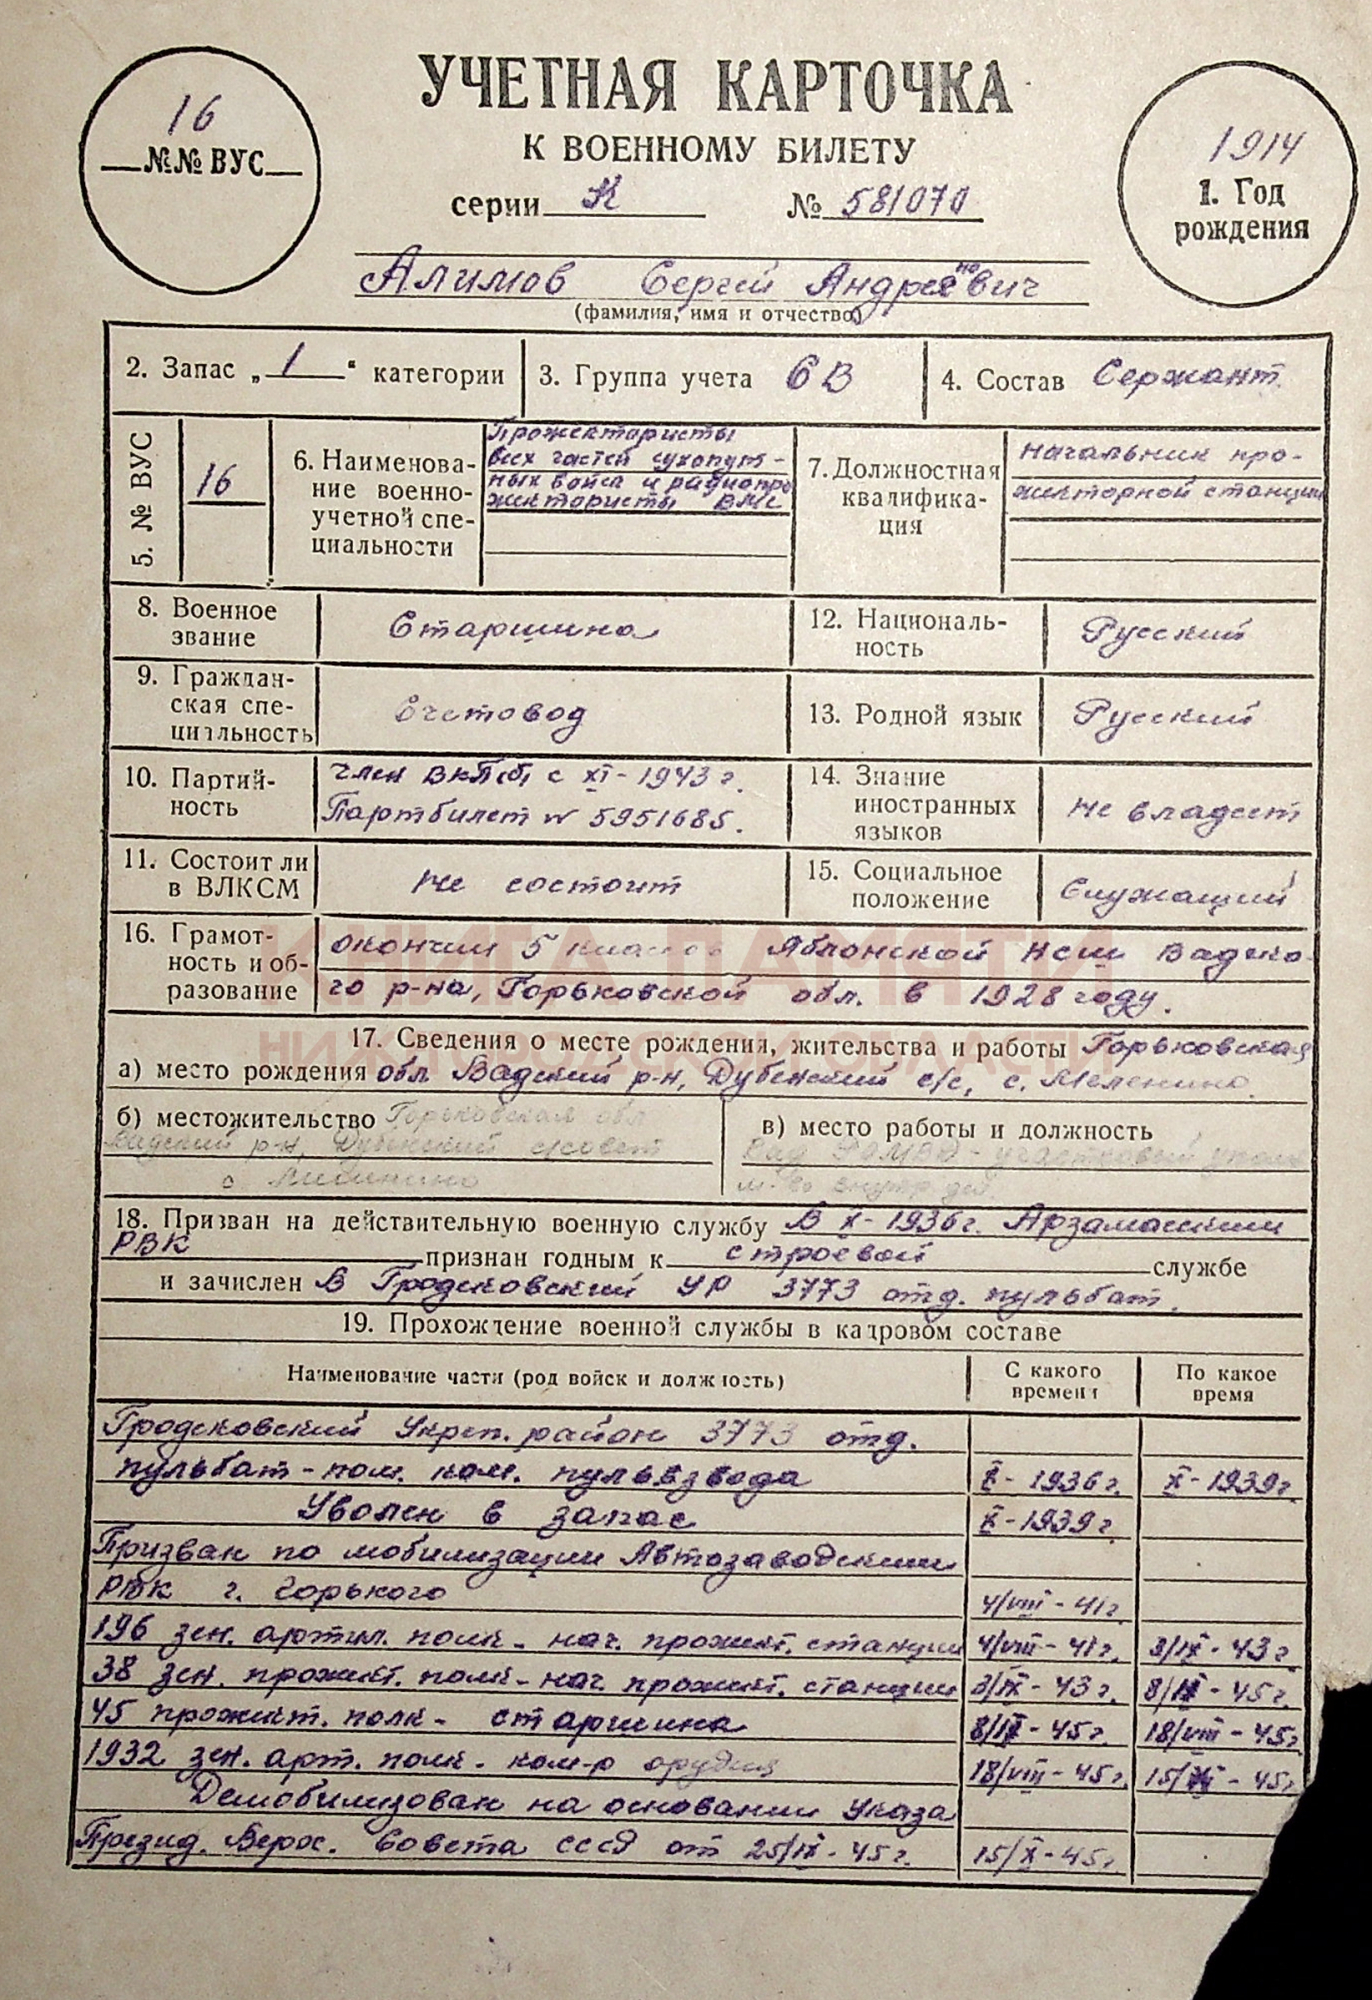 УЧЕТНАЯ КАРТОЧКА
К ВОЕННОМУ БИЛЕТУ
серии К № 581070
16
№№ ВУС
1914
1. Год
рождения
Алимов Сергей Андреевич
но
(фамилия, имя и отчество)
2. Запас „1“ категории
3. Группа учета 6В
4. Состав Сержант
5. № ВУС
16
6. Наименова-
ние военно-
учетной спе-
циальности
Прожектористы
всех частей сухопут-
ных войск и радиопро
жектористы ВМС
7. Должностная
квалифика-
ция
Начальник про-
жекторной станции
8. Военное
звание
Старшина
12. Националь-
ность
Русский
9. Граждан-
ская спе-
циальность
Счетовод
13. Родной язык
Русский
10. Партий-
ность
Член ВКП(б) с XI-1943 г.
Партбилет № 5951685.
14. Знание
иностранных
языков
Не владеет
11. Состоит ли
в ВЛКСМ
Не состоит
15. Социальное
положение
Служащий
16. Грамот-
ность и об-
разование
окончил 5 классов Яблонской НСШ Вадско-
го р-на, Горьковской обл. в 1928 году.
КНИГА ПАМЯТИ
НИЖЕГОРОДСКОЙ ОБЛАСТИ
17. Сведения о месте рождения, жительства и работы Горьковская
а) место рождения обл. Вадский р-н, Дубенский с/с, с. Меленино.
б) местожительство Горьковская обл
Вадский р-н, Дубенский с/совет
с.
в) место работы и должность
Вад РОМВД - участковый упол
18. Призван на действительную военную службу В X-1936 г. Арзамасским
РВК признан годным к строевой службе
и зачислен В Гродековский УР 3773 отд. пульбат.
19. Прохождение военной службы в кадровом составе
Наименование части (род войск и должность)
С какого
времени
По какое
время
Гродековский Укреп. район 3773 отд.
пульбат - пом. ком. пульвзвода X-1936 г. X-1939 г.
Уволен в запас X-1939 г.
Призван по мобилизации Автозаводским
РВК г. Горького 4/VIII-41 г.
196 зен. артил. полк - нач. прожект. станции 4/VIII-41 г. 3/IX-43 г.
38 зен. прожект. полк - нач. прожект. станции 3/IX-43 г. 8/ -45 г.
45 прожект. полк - старшина 8/ -45 г. 18/VIII-45 г.
1932 зен. арт. полк - ком-р орудия 18/VIII-45 г. 15/ -45 г.
Демобилизован на основании Указа
Презид. Верх. Совета СССР от 25/IX-45 г. 15/X-45 г.